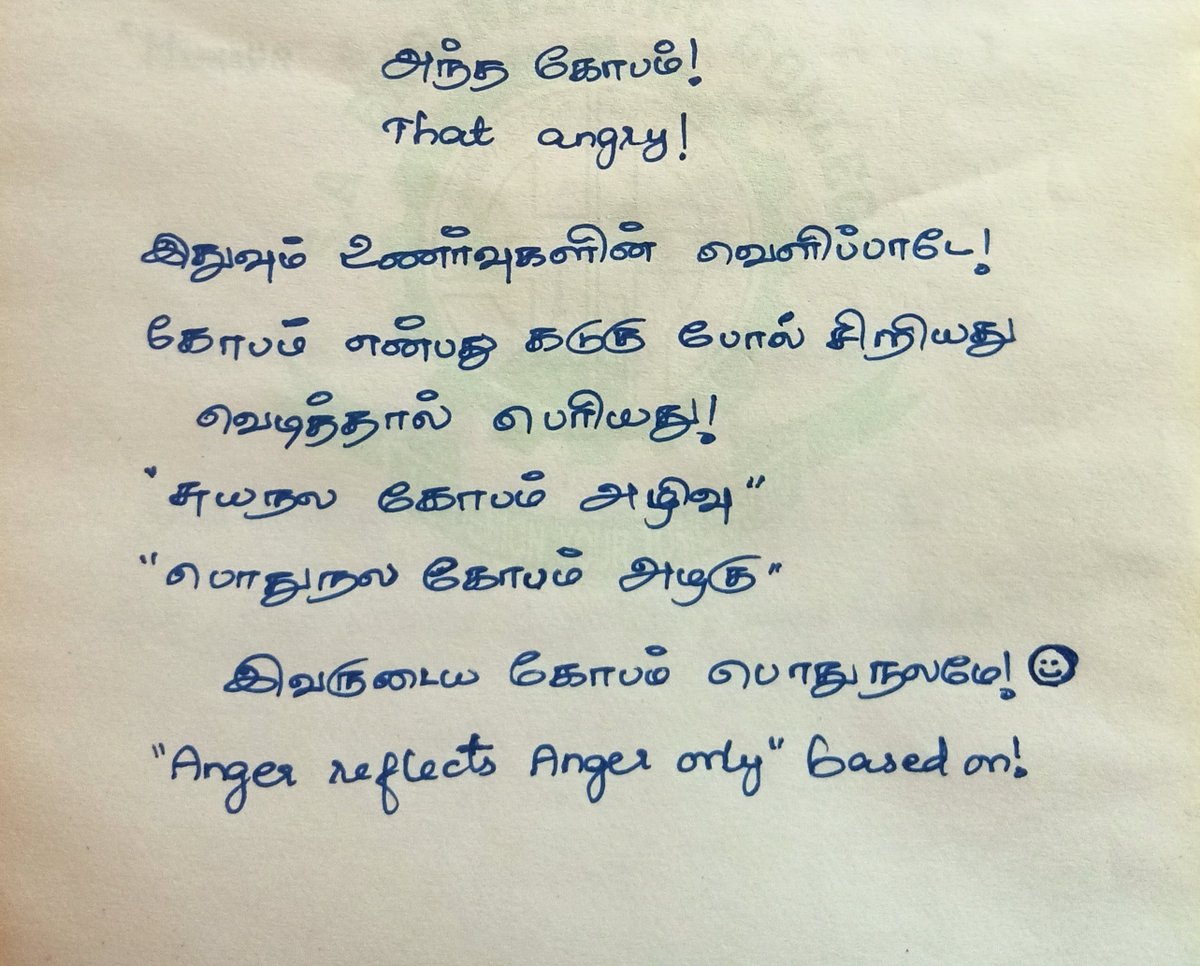 அந்த கோபம்!
That angry!
இதுவும் உணர்வுகளின் வெளிப்பாடே!
கோபம் என்பது கடுகு போல் சிறியது
வெடித்தால் பெரியது!
"சுயநல கோபம் அழிவு"
"பொதுநல கோபம் அழகு"
இவருடைய கோபம் பொதுநலமே! ☺
"Anger reflects Anger only" based on!